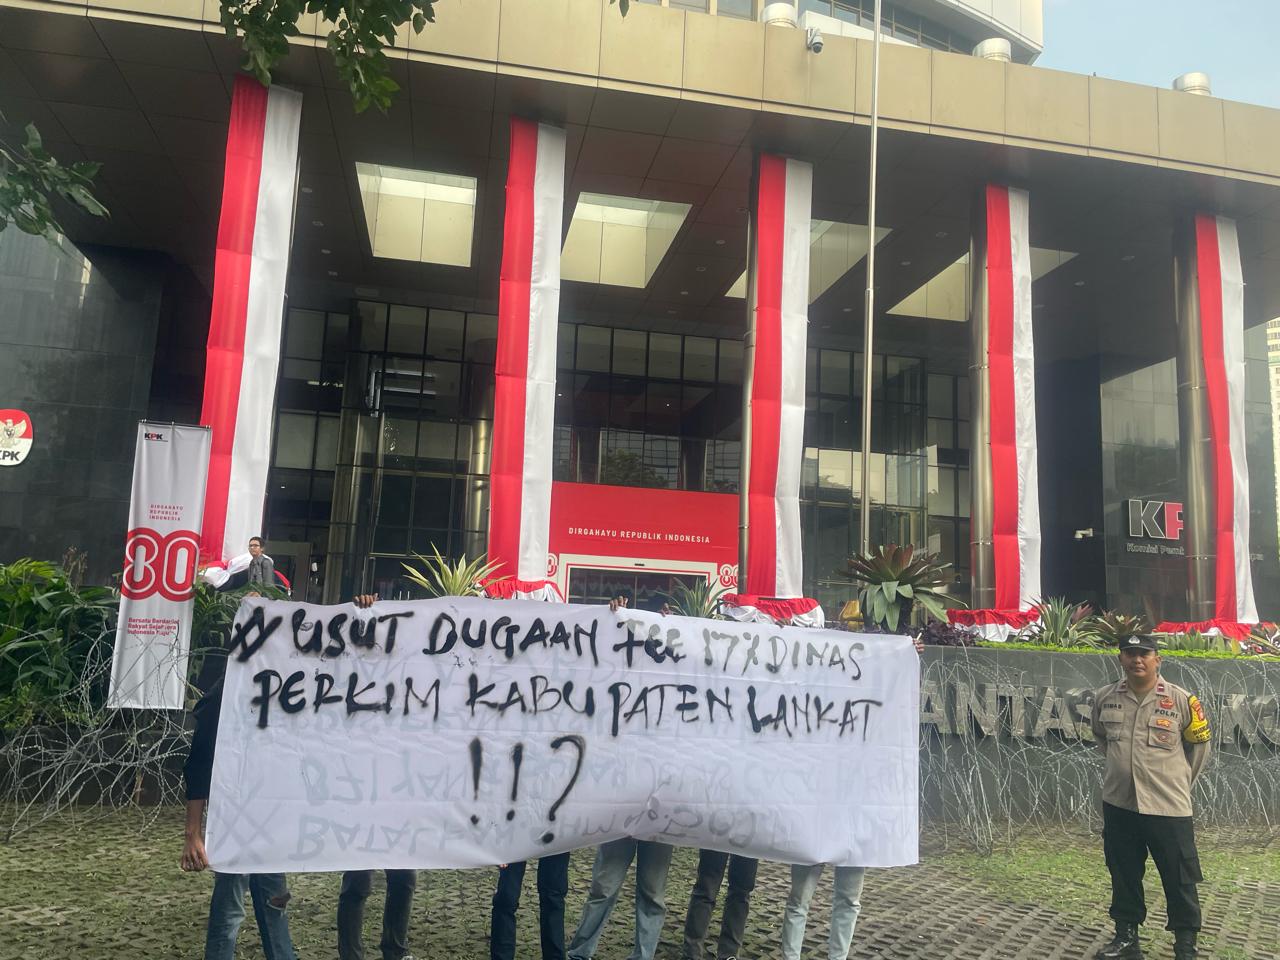 KPK
KPK
DIRGAHAYU
REPUBLIK
INDONESIA
80
Bersatu Berdaulat
Rakyat Sejahtera
Indonesia Maju
DIRGAHAYU REPUBLIK INDONESIA
80
KP
Komisi Pemb
USUT DUGAAN FEE 17% DINAS
PERKIM KABUPATEN LANKAT
!!?
ANTAS
DIMAS
POLRI